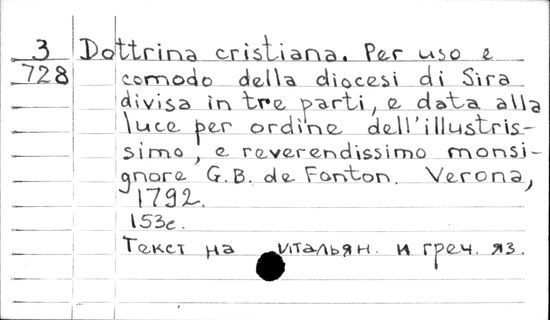 3 Dottrina cristiana. Per uso e
728 comodo della diocesi di Sira
divisa in tre parti, e data alla
luce per ordine dell'illustris-
simo, e reverendissimo monsi-
gnore G.B. de Fonton. Verona,
1792.
153с.
Текст на итальян. и греч. яз.